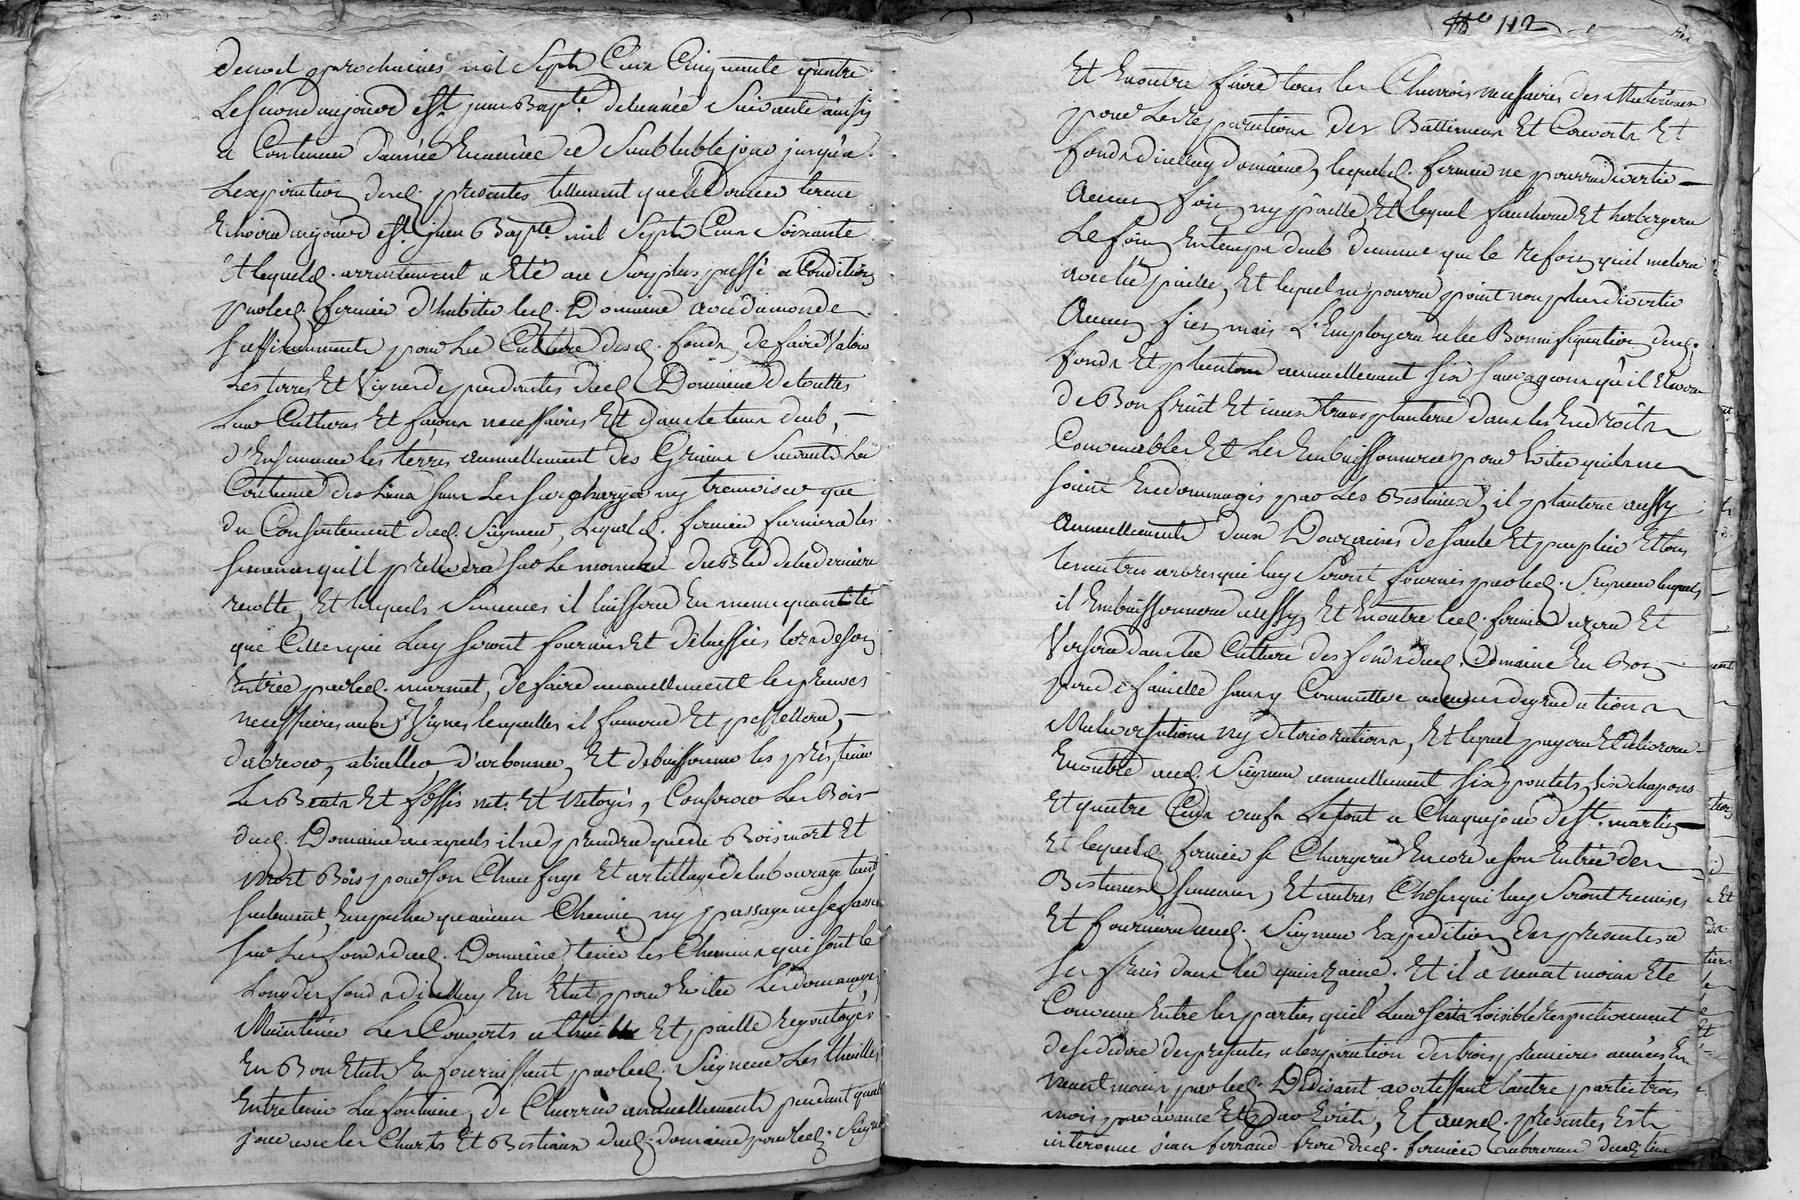 de noel prochaines mil Sept Cens Cinquante quatre
Le Second aujourd St. jean Bapte. de lannée Suivante ainsy
a Continuer dannée En année de Semblable jour jusqu'a
Lexpiration desd. presentes tellement que le Dernier terme
Echoira aujourd St. jean Bapte. mil Sept Cens Soixante
Et lequeld. arrentement a Eté au Surplus passé a Condition
par led. fermier d'habiter led. Domaine avec du monde
Suffisamment pour La Culture desd. fonds, de faire Valoir
Les terres Et Vignes dependantes dud. Domaine de touttes
Leurs Cultures Et façons necessaires Et dans le tems deub, —
d'Ensemencer les terres annuellement des Grains Suivant La
Coutume des Lieux Sans Les Surcharger ny tremoiser que
du Consentement dud. Seigneur, Lequeld. fermier fournira les
Semences qu'il prelevera Sur Le monceau du Bled de la derniere
recolte, Et lesquels Semences il laissera En meme quantité
que Celles qui Luy Seront fournies Et delaissées lors de son
Entrée par led. murmet, de faire annuellement les preuves
necessaires aux Vignes lesquelles il fumera Et paissellera, —
 Et debuissonner les prés, tenir
Les Biefs Et fossés net. Et Netoyés, Conserver Les Bois —
dud. Domaine auxquels il ne prendra que du Bois mort Et
mort Bois pour Son Chauffage Et artillage de labourage tant
Seulement, Empecher qu'aucun Chemin ny passage ne se fasse
Sur Les fonds dud. Domaine, tenir les Chemins qui Sont le
Long des fonds d'icelluy En Etat pour Eviter Les dommages,
Maintenir Les Couverts a thuille Et paille regoutoyés
En Bon Etat En fournissant par led. Seigneur Les thuilles
Entretenir La fontaine, de Charrier annuellement pendant quatre
jours avec les Chars Et Bestiaux dud. domaine pour led. Seigneur
No 112
Et Enoutre faire tous les Charrois necessaires des Materiaux
pour Les reparations des Battimens Et Couverts Et
fonds d'icelluy domaine, lequeld. fermier ne pourra divertir —
Aucun foin, ny paille, Et lequel fauchera Et hebergera
Le foin En temps deub de meme que le refoin qu'il melera
avec la paille, Et lequel ne pourra point non plus divertir
Aucun fien, mais L'Employera a la Bonnification desd.
fonds Et plantera annuellement Six Sauvageons qu'il
de Bon fruit Et iceux transplantera dans les Endroits
Convenables Et Les Embuissonnera pour Eviter qu'ils ne
Soient Endommagés par Les Bestiaux, il plantera aussy
Annuellement deux Douzaines de Saule Et peuplier Et tous
les autres arbres qui luy Seront fournis par led. Seigneur lesquels
il Embuissonnera aussy, Et Enoutre led. fermier uzera Et
Versera dans la Culture des fonds dud. Domaine En Bon —
pere de famille Sans y Commettre aucunes degradations
Malversations ny deteriorations, Et lequel payera Et delivrera
Enoutre aud. Seigneur annuellement Six poulets, Six chapons
Et quatre Cens œufs Le tout a Chaque jour de St. martin —
Et lequeld. fermier Se Chargera Encore a Son Entrée des
Bestiaux, Semences, Et autres Choses qui luy Seront remises
Et fournira aud. Seigneur Expedition des presentes a
Ses frais dans la quinzaine, Et il a neant moins Eté
Convenu Entre les parties qu'il Leur Sera Loisible respectivement
de Se dedire des presentes a lexpiration des trois premieres années En
neant moins par led. Dedisant avertissant lautre partie trois
mois par avance Et par Ecrit, Et auxd. presentes Est
intervenu jean ferrand frere dud. fermier Laboureur